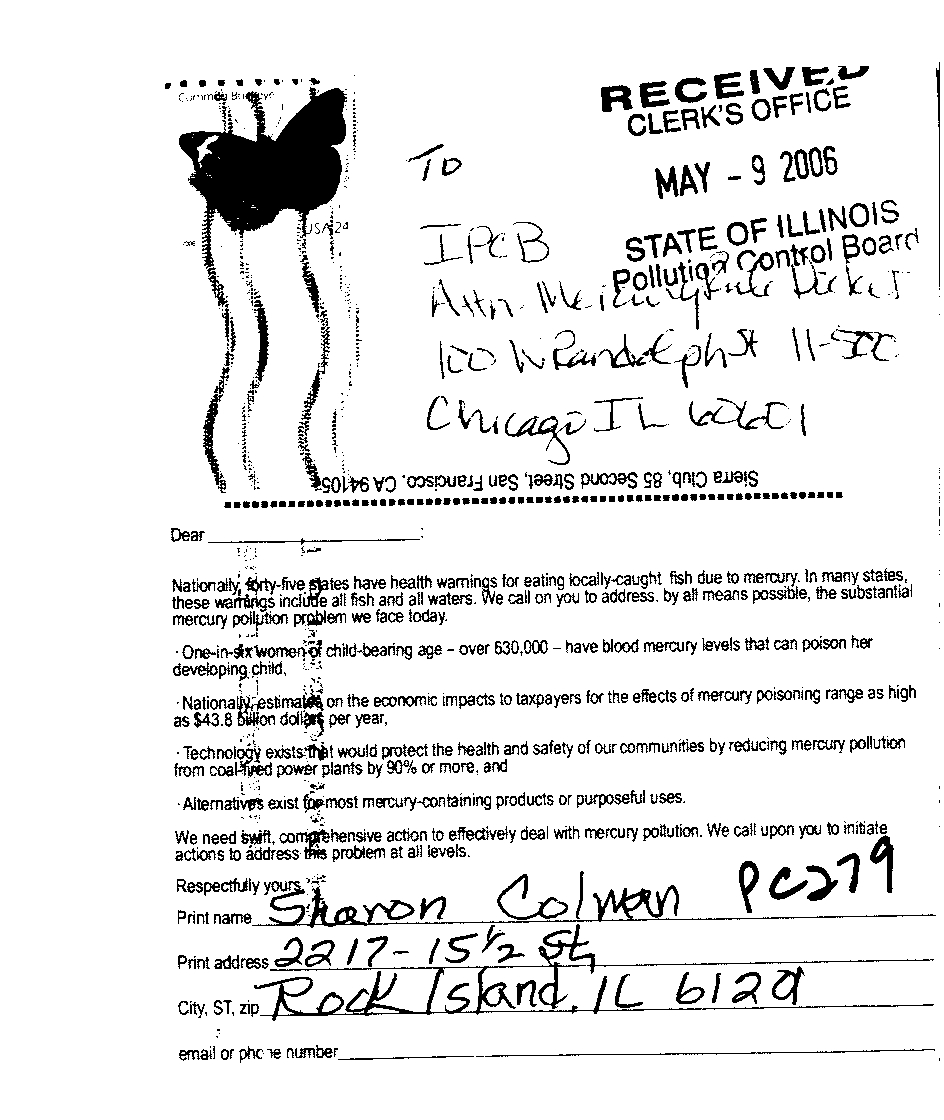 Common Buckeye
USA 24
RECEIVED
CLERK'S OFFICE
MAY - 9 2006
STATE OF ILLINOIS
Pollution Control Board
To
IPCB
Attn. Mercury Rule Docket
100 W Randolph St 11-500
Chicago IL 60601
Sierra Club, 85 Second Street, San Francisco, CA 94105
Dear
Nationally, forty-five states have health warnings for eating locally-caught fish due to mercury. In many states,
these warnings include all fish and all waters. We call on you to address. by all means possible, the substantial
mercury pollution problem we face today.
· One-in-six women of child-bearing age – over 630,000 – have blood mercury levels that can poison her
developing child,
· Nationally, estimates on the economic impacts to taxpayers for the effects of mercury poisoning range as high
as $43.8 billion dollars per year,
· Technology exists that would protect the health and safety of our communities by reducing mercury pollution
from coal-fired power plants by 90% or more, and
· Alternatives exist for most mercury-containing products or purposeful uses.
We need swift, comprehensive action to effectively deal with mercury pollution. We call upon you to initiate
actions to address this problem at all levels.
Respectfully yours,
Print name Sharon Colman PC279
Print address 2217-15 1/2 St,
City, ST, zip Rock Island, IL 61201
email or phone number